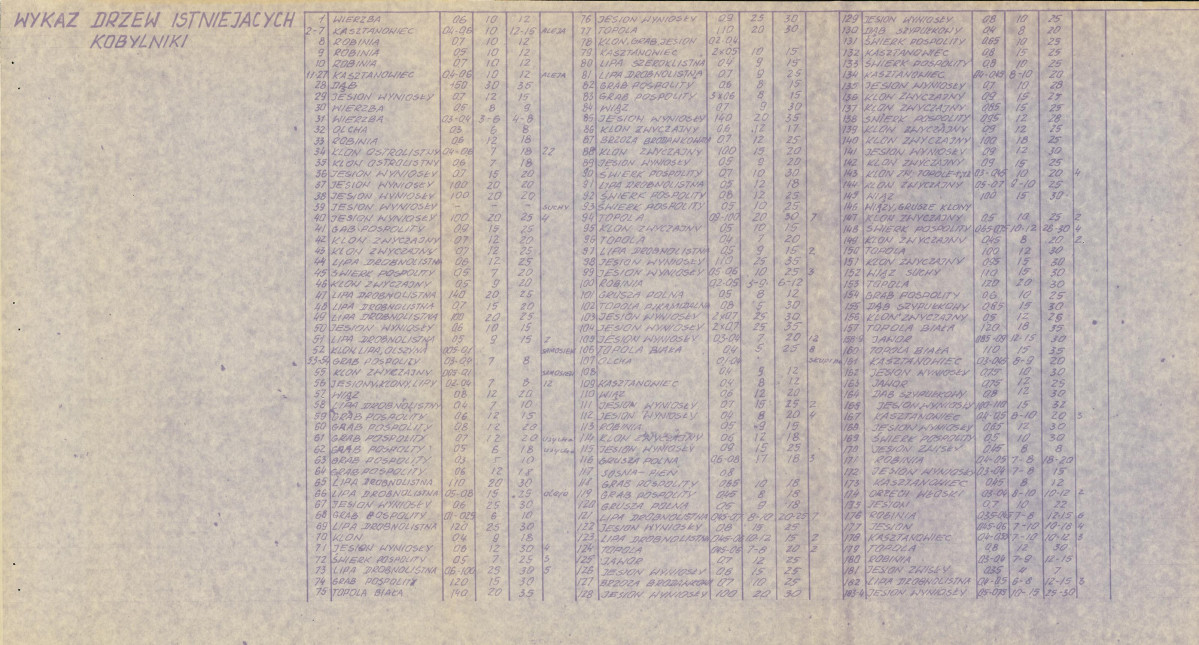 WYKAZ DRZEW ISTNIEJĄCYCH
KOBYLNIKI
1 WIERZBA 06 10 12
2-7 KASZTANOWIEC 04-06 10 12-15 ALEJA
8 ROBINIA 07 10 12
9 ROBINIA 05 10 12
10 ROBINIA 07 10 12
11-27 KASZTANOWIEC 04-06 10 12 ALEJA
28 DĄB 150 30 35
29 JESION WYNIOSŁY 07 12 15
30 WIERZBA 05 8 9
31 WIERZBA 03-04 3-6 4-8
32 OLCHA 03 6 8
33 ROBINIA 06 12 18
34 KLON OSTROLISTNY 04-06 7 18 22
35 KLON OSTROLISTNY 06 7 18
36 JESION WYNIOSŁY 07 15 20
37 JESION WYNIOSŁY 100 20 20
38 JESION WYNIOSŁY 100 20 20
39 JESION WYNIOSŁY - - - SUCHY
40 JESION WYNIOSŁY 100 20 25 4
41 GAB POSPOLITY 09 15 25
42 KLON ZWYCZAJNY 07 12 20
43 KLON ZWYCZAJNY 07 12 25
44 LIPA DROBNOLISTNA 06 12 25
45 ŚWIERK POSPOLITY 05 7 20
46 KLON ZWYCZAJNY 05 9 20
47 LIPA DROBNOLISTNA 140 20 25
48 LIPA DROBNOLISTNA 07 15 20
49 LIPA DROBNOLISTNA 100 20 25
50 JESION WYNIOSŁY 06 10 15
51 LIPA DROBNOLISTNA 05 9 15 2
52 KLON, LIPA, OLSZYNA 005-01 SAMOSIEW
53-54 GRAB POSPOLITY 03-04 7 8
55 KLON ZWYCZAJNY 005-01 SAMOSIEW
56 JESIONY, KLONY, LIPY 02-04 7 8 12
57 WIĄZ 08 12 20
58 LIPA DROBNOLISTNA 04 7 10
59 GRAB POSPOLITY 06 12 15
60 GRAB POSPOLITY 08 12 20
61 GRAB POSPOLITY 07 12 20
62 GRAB POSPOLITY 05 6 18
63 GRAB POSPOLITY 03 5 10
64 GRAB POSPOLITY 06 12 18
65 LIPA DROBNOLISTNA 110 20 30
66 LIPA DROBNOLISTNA 05-08 15 25 aleja
67 JESION WYNIOSŁY 06 25 30
68 GRAB POSPOLITY 01-025 6 10
69 LIPA DROBNOLISTNA 120 25 30
70 KLON 04 9 18
71 JESION WYNIOSŁY 06 12 30 4
72 ŚWIERK POSPOLITY 05 7 25 3
73 LIPA DROBNOLISTNA 06-100 25 30 5
74 GRAB POSPOLITY 120 15 30
75 TOPOLA BIAŁA 140 20 35
76 JESION WYNIOSŁY 09 25 30
77 TOPOLA 110 20 30
78 KLON, GRAB, JESION 02-04
79 KASZTANOWIEC 2x05 10 15
80 LIPA SZEROKLISTNA 04 9 15
81 LIPA DROBNOLISTNA 07 9 25
82 GRAB POSPOLITY 06 8 15
83 GRAB POSPOLITY 3x06 8 15
84 WIĄZ 07 9 30
85 JESION WYNIOSŁY 140 20 35
86 KLON ZWYCZAJNY 06 12 17
87 BRZOZA BRODAWKOWA 07 12 25
88 KLON ZWYCZAJNY 100 15 20
89 JESION WYNIOSŁY 05 9 20
90 ŚWIERK POSPOLITY 07 10 30
91 LIPA DROBNOLISTNA 05 12 18
92 ŚWIERK POSPOLITY 08 12 25
93 ŚWIERK POSPOLITY 05 10 25
94 TOPOLA 09-100 20 30 7
95 KLON ZWYCZAJNY 05 10 15
96 TOPOLA 04 7 20
97 LIPA DROBNOLISTNA 05 9 15 2
98 JESION WYNIOSŁY 110 25 35
99 JESION WYNIOSŁY 05-06 10 25 3
100 ROBINIA 02-05 3-9 6-12
101 GRUSZA POLNA 05 8 12
102 TOPOLA PIRAMIDALNA 08 5 30
103 JESION WYNIOSŁY 2x07 25 30
104 JESION WYNIOSŁY 2x07 25 35
105 JESION WYNIOSŁY 03-04 7 20 12
106 TOPOLA BIAŁA 04 5 25 8
107 OLCHA
108 04 9 12
109 KASZTANOWIEC 04 8 12
110 WIĄZ 06 12 20
111 JESION WYNIOSŁY 07 15 25 2
112 JESION WYNIOSŁY 04 8 20 4
113 ROBINIA 05 9 15
114 KLON ZWYCZAJNY 06 12 18
115 JESION WYNIOSŁY 09 15 25
116 GRUSZA POLNA 06-08 17 18 3
117 SOSNA-PIEŃ 08
118 GRAB POSPOLITY 055 10 18
119 GRAB POSPOLITY 045 8 18
120 GRUSZA POLNA 05 9 18
121 LIPA DROBNOLISTNA 045-07 8-10 20-25 7
122 JESION WYNIOSŁY 08 15 25
123 LIPA DROBNOLISTNA 045-08 10-12 15 2
124 TOPOLA 045-06 7-8 20 2
125 JAWOR 07 12 25
126 JESION WYNIOSŁY 06 15 25
127 BRZOZA BRODAWKOWA 07 10 25
128 JESION WYNIOSŁY 100 20 30
129 JESION WYNIOSŁY 08 10 25
130 DĄB SZYPUŁKOWY 04 8 20
131 ŚWIERK POSPOLITY 065 10 25
132 KASZTANOWIEC 08 15 25
133 ŚWIERK POSPOLITY 08 10 25
134 KASZTANOWIEC 04-045 8-10 20
135 JESION WYNIOSŁY 07 10 28
136 KLON ZWYCZAJNY 09 15 25
137 KLON ZWYCZAJNY 085 15 25
138 ŚWIERK POSPOLITY 095 12 28
139 KLON ZWYCZAJNY 09 12 25
140 KLON ZWYCZAJNY 100 18 25
141 JESION WYNIOSŁY 09 12 30
142 KLON ZWYCZAJNY 09 15 25
143 KLON ZW. 03-045 10 20 4
144 KLON ZWYCZAJNY 05-07 9-10 25
145 WIĄZ 100 15 30
146 WIĄZY, GRUSZE KLONY
147 KLON ZWYCZAJNY 05 10 25 2
148 ŚWIERK POSPOLITY 065-075 10-12 28-30 4
149 KLON ZWYCZAJNY 045 8 20 2
150 TOPOLA 100 12 30
151 KLON ZWYCZAJNY 075 15 30
152 WIĄZ SUCHY 110 15 30
153 TOPOLA 120 20 30
154 GRAB POSPOLITY 06 10 25
155 DĄB SZYPUŁKOWY 065 15 30
156 KLON ZWYCZAJNY 05 12 26
157 TOPOLA BIAŁA 120 18 35
JAWOR 085-09 12-15 30
160 TOPOLA BIAŁA 110 15 35
161 KASZTANOWIEC 03-045 8-9 20
162 JESION WYNIOSŁY 075 10 30
163 JAWOR 075 12 25
164 DĄB SZYPUŁKOWY 08 12 30
JESION WYNIOSŁY 100-110 15 32
167 KASZTANOWIEC 04-05 8-10 20 3
168 JESION WYNIOSŁY 085 12 30
169 ŚWIERK POSPOLITY 05 10 30
170 JESION ZWISŁY 045 8 8
171 ROBINIA 04-05 7-8 18-20
172 JESION WYNIOSŁY 03-04 7-8 15
173 KASZTANOWIEC 045 8 12
174 ORZECH WŁOSKI 03-04 8-10 10-12 2
175 JESION 07 10 22
176 ROBINIA 035-04 7-8 12-15 6
177 JESION 045-06 7-10 10-18 4
178 KASZTANOWIEC 04-055 7-10 10-12 3
179 TOPOLA 08 12 30
180 ROBINIA 03-04 7-9 12-15
181 JESION ZWISŁY 035 4 7
182 LIPA DROBNOLISTNA 04-05 6-8 12-15 3
183-4 JESION WYNIOSŁY 05-075 10-15 25-30